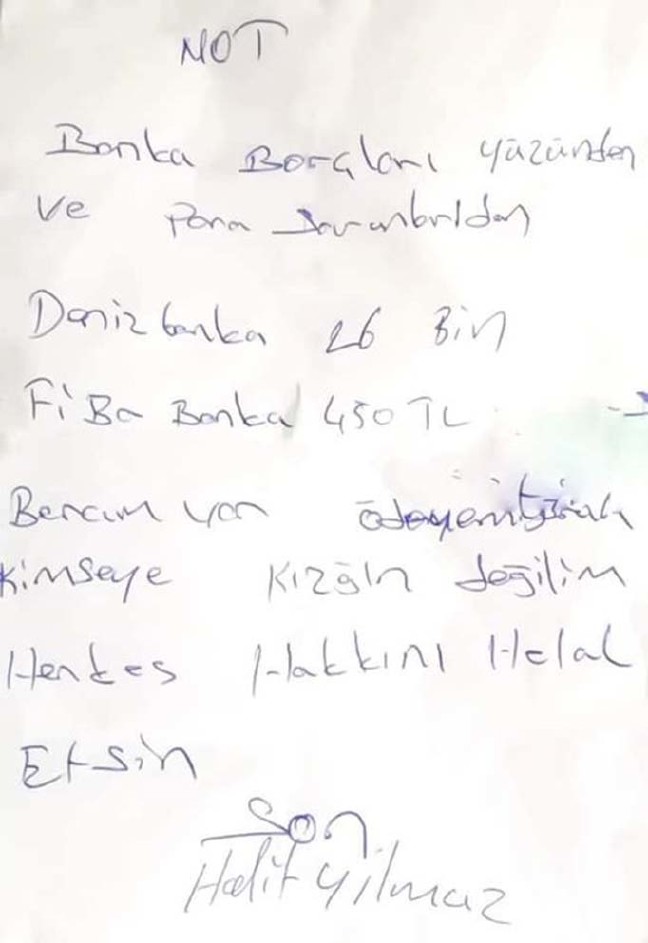 NOT
Banka Borçları yüzünden
ve Para
Denizbanka 26 Bin
FiBa Banka 450 TL
Borcum var
Kimseye Kızgın değilim
Herkes Hakkını Helal
Etsin
Son
Halit Yılmaz